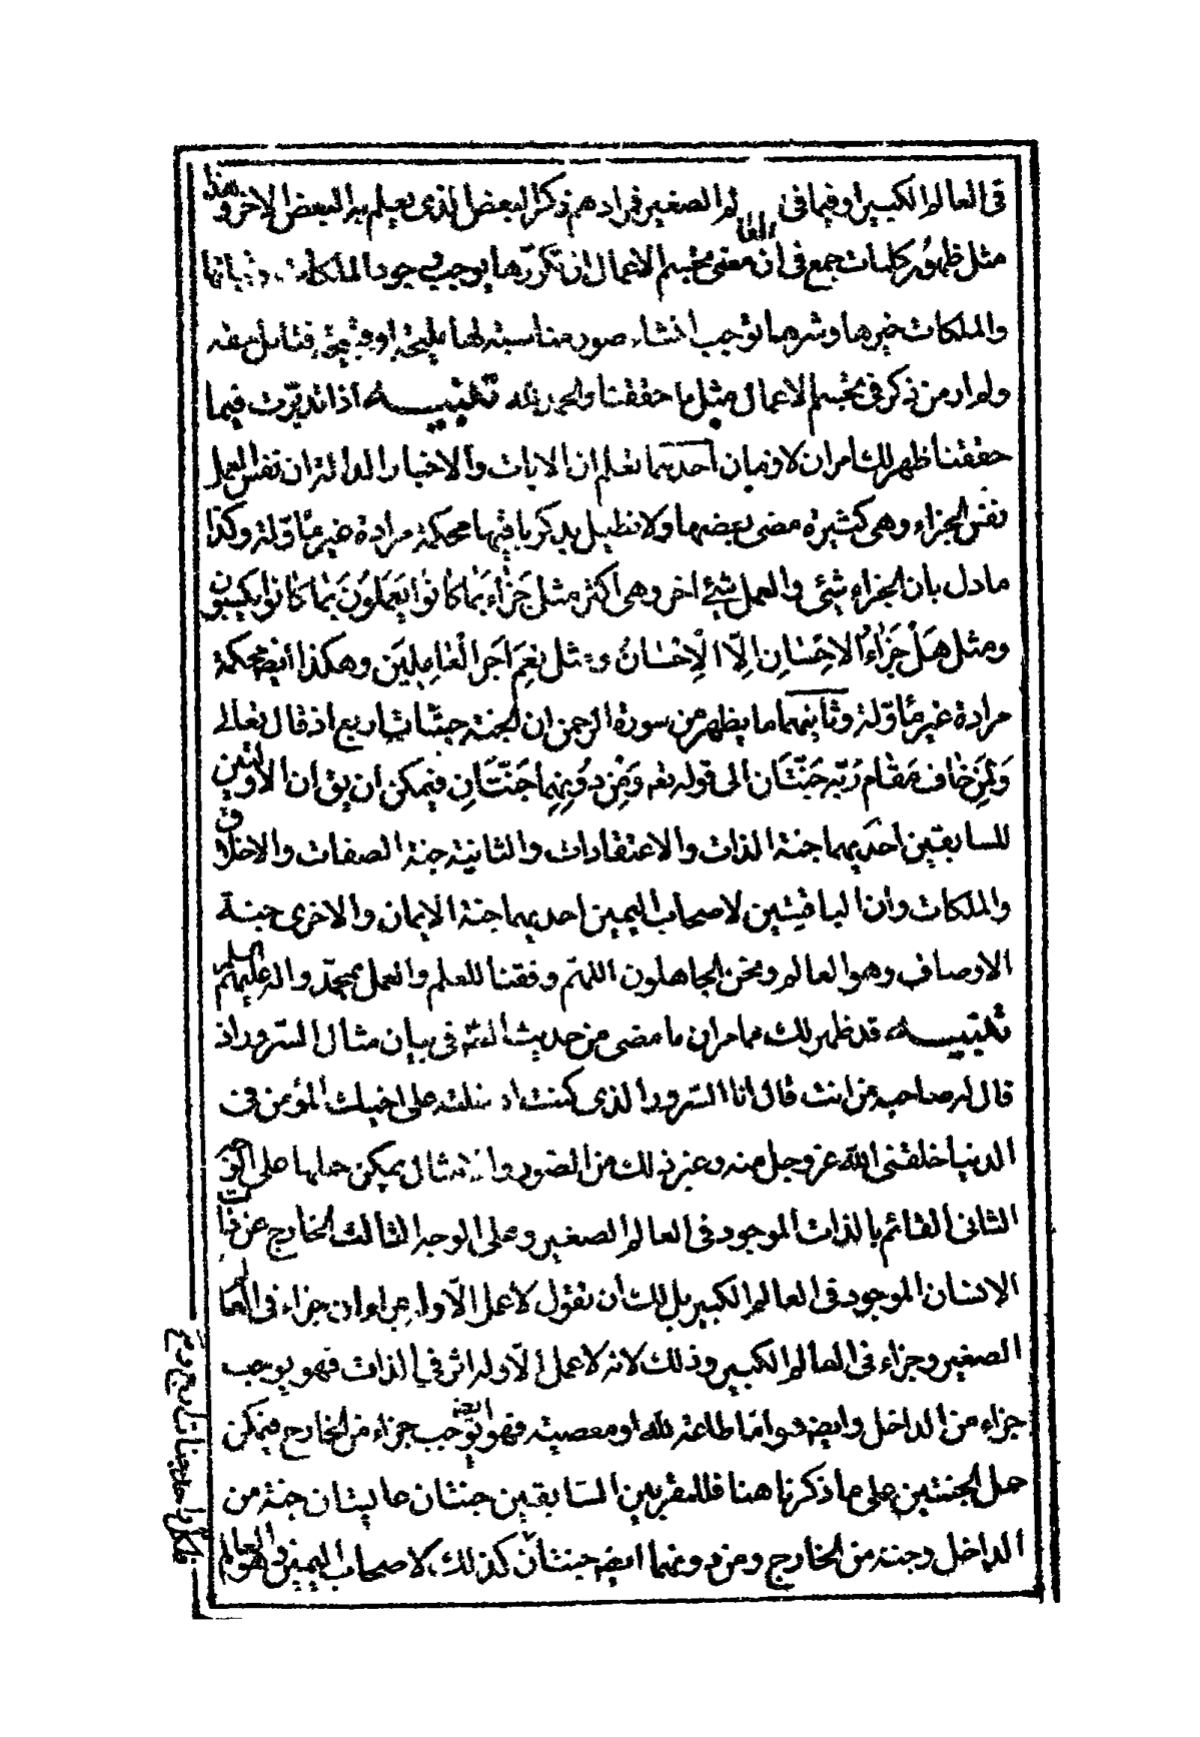 فى العالم الكبير او فيما فى العالم الصغير فمرادهم ذكر البعض الذى يعلم به البعض الاخر وهذا
مثل ظهور كلمات جمع فى ان معنى تجسم الاعمال ان تكررها يوجب وجود الملكات وثباتها
والملكات خيرها وشرها توجب انشاء صور مناسبة لها مليحة او قبيحة فتامل تفه
ولم ار من ذكر فى تجسم الاعمال مثل ما حققنا والحمد لله تنبيه اذا تدبرت فيما
حققنا ظهر لك امران لازمان احديهما تعلم ان الايات والاخبار الدالة ان نفس العمل
نفس الجزاء وهى كثيرة مضى بعضها ولا نطيل بذكر باقيها محكمة مرادة غير مأولة وكذا
ما دل بان الجزاء شئ والعمل شئ اخر وهى اكثر مثل جَزٰاءً بَمٰا كٰانُوا يَعمَلُونَ بَمٰا كٰانُوا يَكسِبُون
ومثل هَلْ جَزٰاءُ الاِحْسٰانِ اِلّا الْاِحْسٰانُ ومثل نِعمَ اَجرُ الْعٰامِلِيَن وهكذا ايضا محكمة
مرادة غير مأولة وثانيهما ما يظهر من سورة الرحمن ان الجنة جنات اربع اذ قال تعالى
وَلِمَن خٰافَ مَقٰامَ رَبِّه جَنَّتٰان الى قوله تعه وَمِن دُونِهِما جَنَّتٰانِ فيمكن ان يق ان الاولتين
للسابقين احديهما جنة الذات والاعتقادات والثانية جنة الصفات والاخلاق
والملكات وان الباقيتين لاصحاب اليمين احديهما جنة الايمان والاخرى جنة
الاوصاف وهو العالم ونحن الجاهلون اللهم وفقنا للعلم والعمل بمحمد واله عليهم السلم
تنبيه قد ظهر لك مما مر ان ما مضى من حديث ائمة فى بيان مثال السرور اذ
قال له صاحبه من انت قال انا السرور الذى كنت ادخلته على اخيك المؤمن فى
الدنيا خلقنى الله عز وجل منه وغير ذلك من الصور والامثال يمكن حملها على الوجه
الثانى القائم بالذات الموجود فى العالم الصغير وعلى الوجه الثالث الخارج عن ذات
الانسان الموجود فى العالم الكبير بل لك ان تقول لا عمل الّا وله جزاءان جزاء فى العالم
الصغير وجزاء فى العالم الكبير وذلك لانه لا عمل الّا وله اثر فى الذات فهو يوجب
جزاء من الداخل وايضه هو امّا طاعة لله او معصيته فهو يوجب ايضه جزاء من الخارج فيمكن
حمل الجنتين على ما ذكرنا هنا فللمقربين السابقين جنتان عاليتان جنة من
الداخل وجنة من الخارج ومن دونهما ايضه جنتان كذلك لاصحاب اليمين وهو العالم